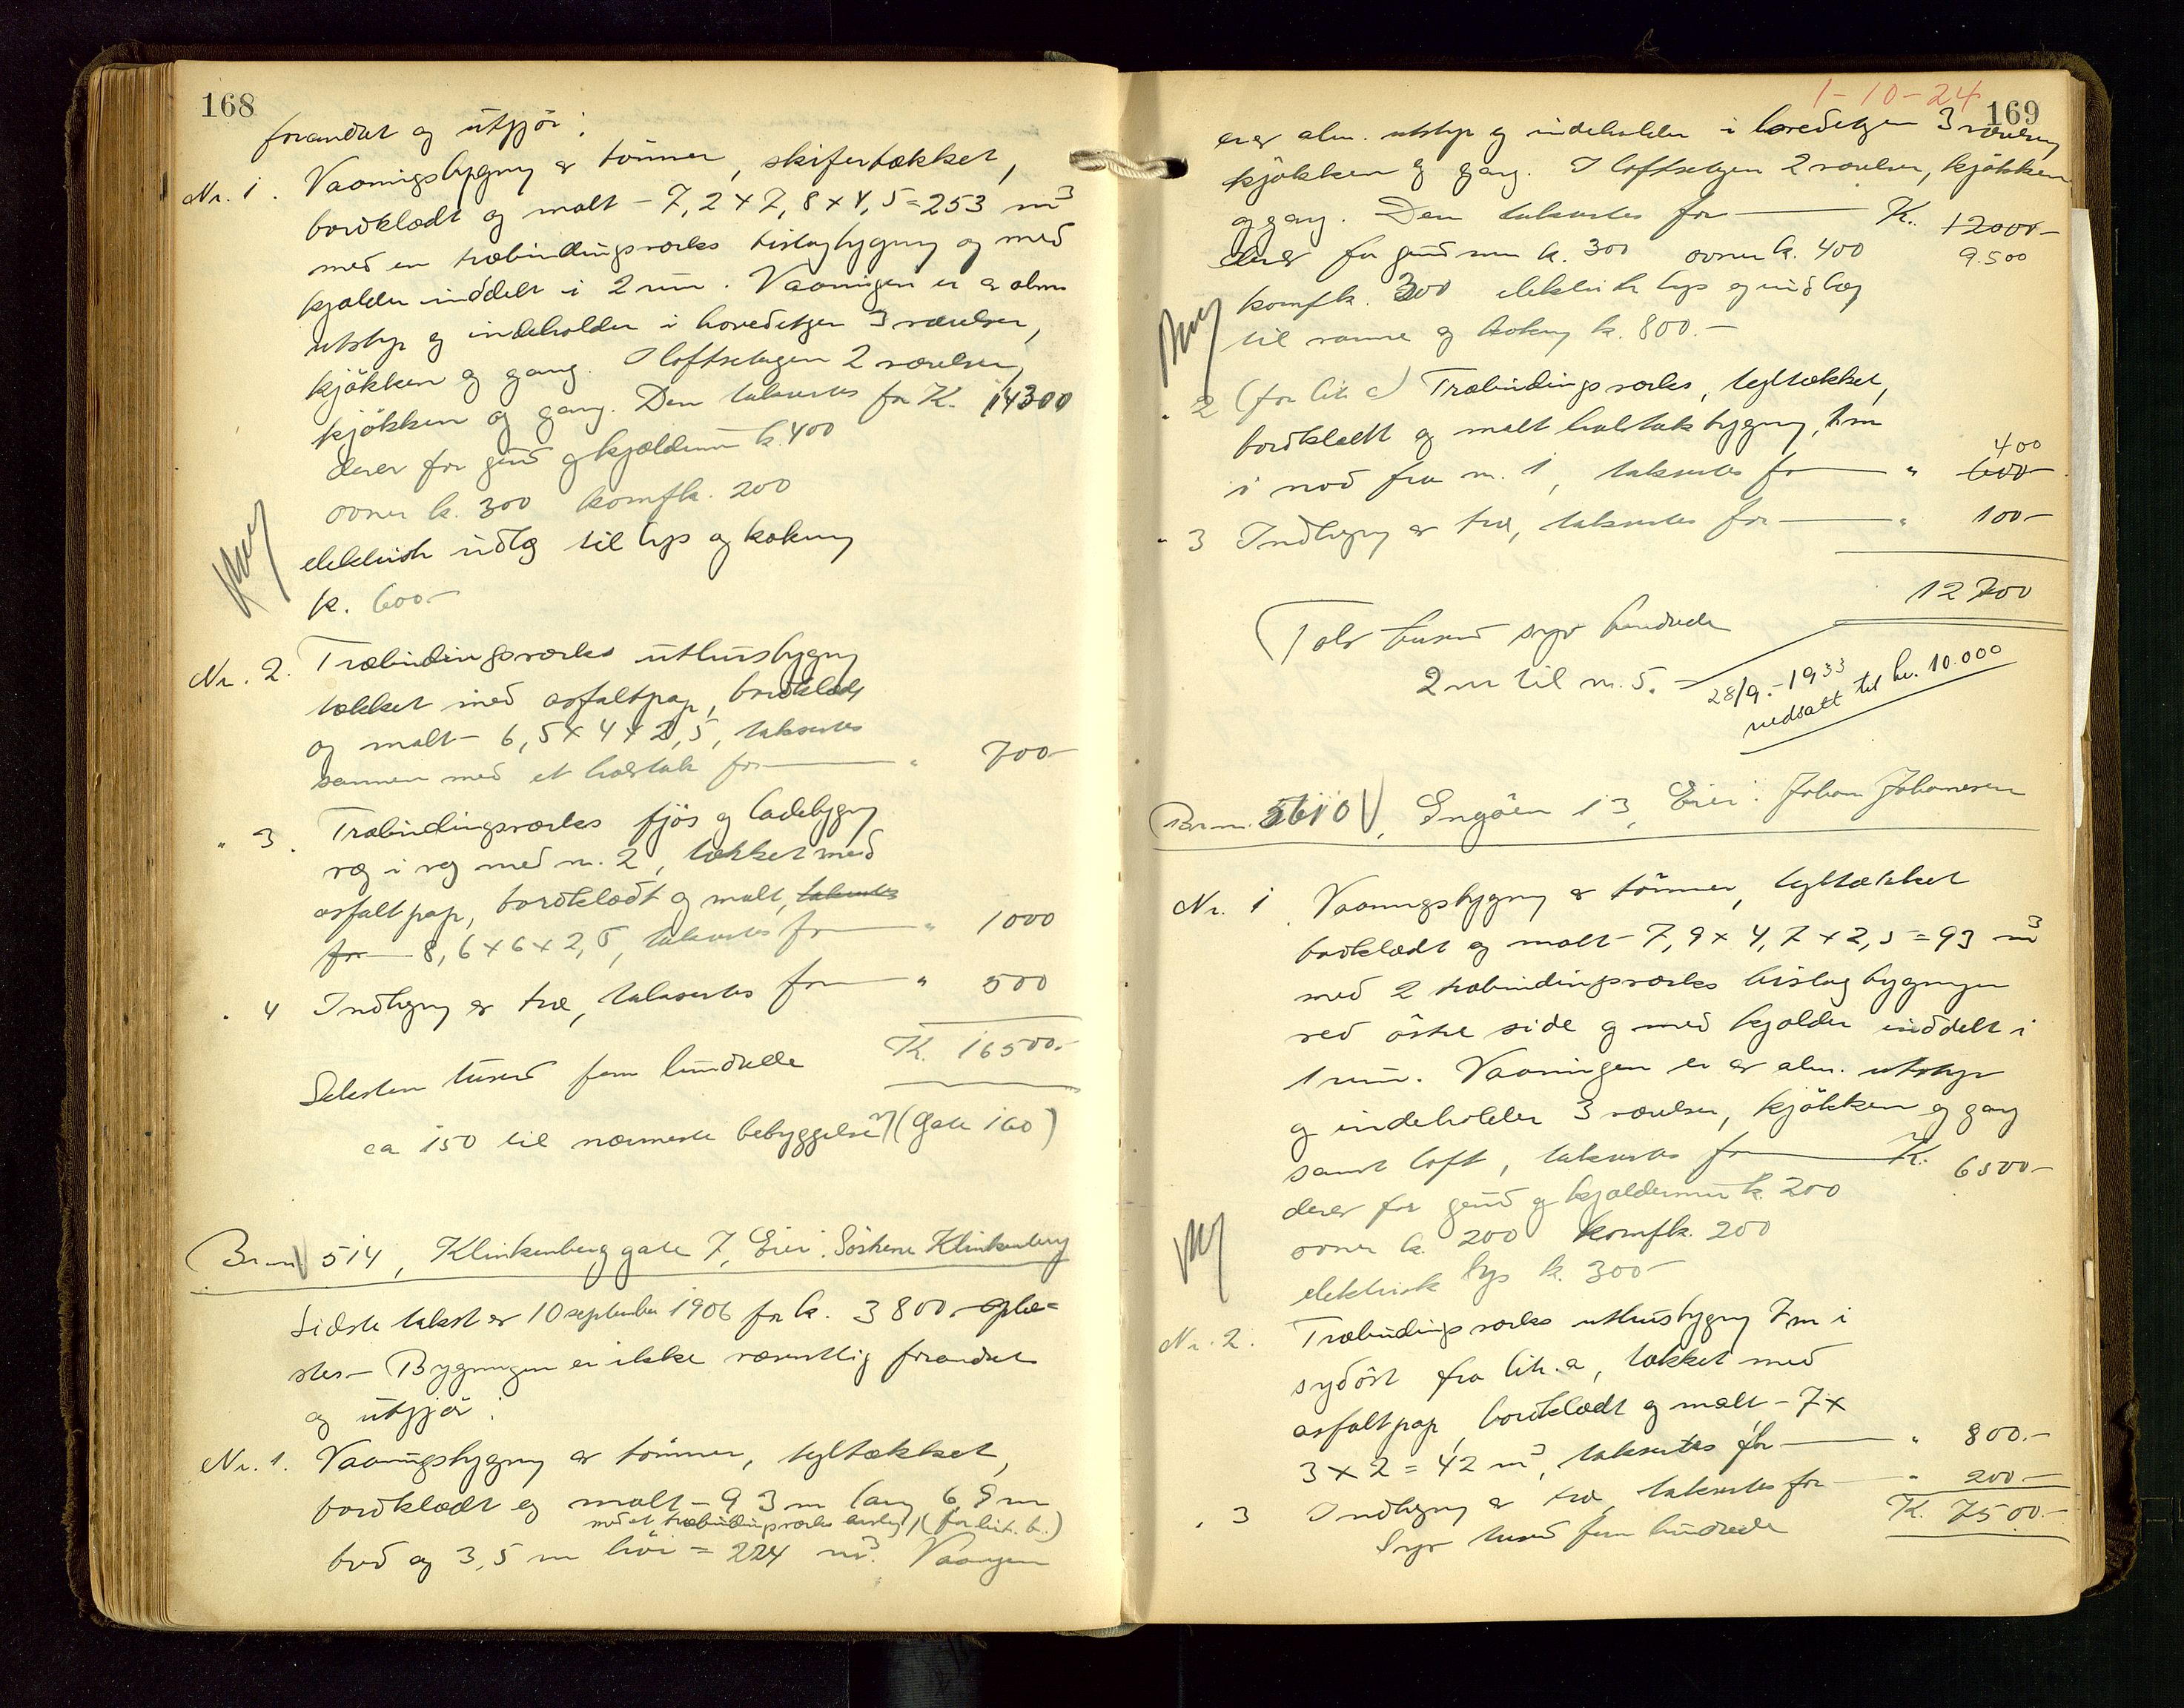 168
forandret og utgjör:
Nr. 1. Vaaningsbygning av tömmer, skifertækket,
bordklædt og malt - 7,2 x 7,8 x 4,5 = 253 m³
med en træbindingsverks bislagbygning og med
kjælder inddelt i 2 rum. Vaaningen er av alm.
utstyr og indeholder i hovedetagen 3 værelser,
kjökken og gang. I loftsetagen 2 værelser,
kjökken og gang. Den takseres for K. 14300
derav for grund og kjældermur k. 400
ovner k. 300 komf k. 200
elektrisk indlæg til lys og kokning
k. 600-
Nr. 2. Træbindingsverks uthusbygning
tækket med asfaltpap, bordklædt
og malt - 6,5 x 4 x 2,5, takseres
sammen med et halvtak for " 700-
" 3. Træbindingsverks fjös og ladebygning
væg i væg med nr. 2, tækket med
asfaltpap, bordklædt og malt, takseres
for 8,6 x 6 x 2,5, takseres for " 1000
" 4 Indhegning av træ, takseres for " 500
K. 16500.-
Seksten tusend fem hundrede
ca 150 m til nærmeste bebyggelse (Gate 160)
Br.nr. 514, Klinkenberg gate 7, Eier: Söskene Klinkenberg
Sidste takst av 10 september 1906 for k. 3800 oplæ-
stes - Bygningen er ikke væsentlig forandret
og utgjör:
Nr. 1. Vaaningsbygning av tömmer, tegltækket,
bordklædt og malt - 9,3 m lang 6,9 m
med et træbindingsverks bislag, (for lit. b.)
bred og 3,5 m höi = 224 m³. Vaaningen
1-10-24
169
er av alm. utstyr og indeholder i hovedetagen 3 værelser,
kjökken og gang. I loftsetagen 2 værelser, kjökken
og gang. Den takseres for K. 12000-
derav for grundmur k. 300 ovner k. 400 9.500
komf k. 300 elektrisk lys og indlæg
til varme og kokning k. 800.-
" 2 (for lit c) Træbindingsverks, tegltækket,
bordklædt og malt halvtakbygning, 1 m
400
i nord fra nr. 1, takseres for " 600-
" 3 Indhegning av træ, takseres for " 100-
12700
Tolv tusend syv hundrede
2 m til nr. 5.
28/9.-1933
nedsatt til kr. 10.000
Br.nr. 5610, Engöien 13, Eier: Johan Johannesen
Nr. 1. Vaaningsbygning av tömmer, tegltækket
bordklædt og malt - 7,9 x 4,7 x 2,5 = 93 m³
med 2 træbindingsverks bislagbygninger
ved östre side og med kjælder inddelt i
1 rum. Vaaningen er av alm. utstyr
og indeholder 3 værelser, kjökken og gang
samt loft, takseres for K. 6500-
derav for grund og kjældermur k. 200
ovner k. 200 komf k. 200
elektrisk lys k. 300-
Nr. 2. Træbindingsverks uthusbygning 7 m i
sydöst fra lit. a, tækket med
asfaltpap, bordklædt og malt - 7 x
3 x 2 = 42 m³, takseres for " 800.-
" 3 Indhegning av træ, takseres for " 200-
K. 7500.-
Syv tusend fem hundrede